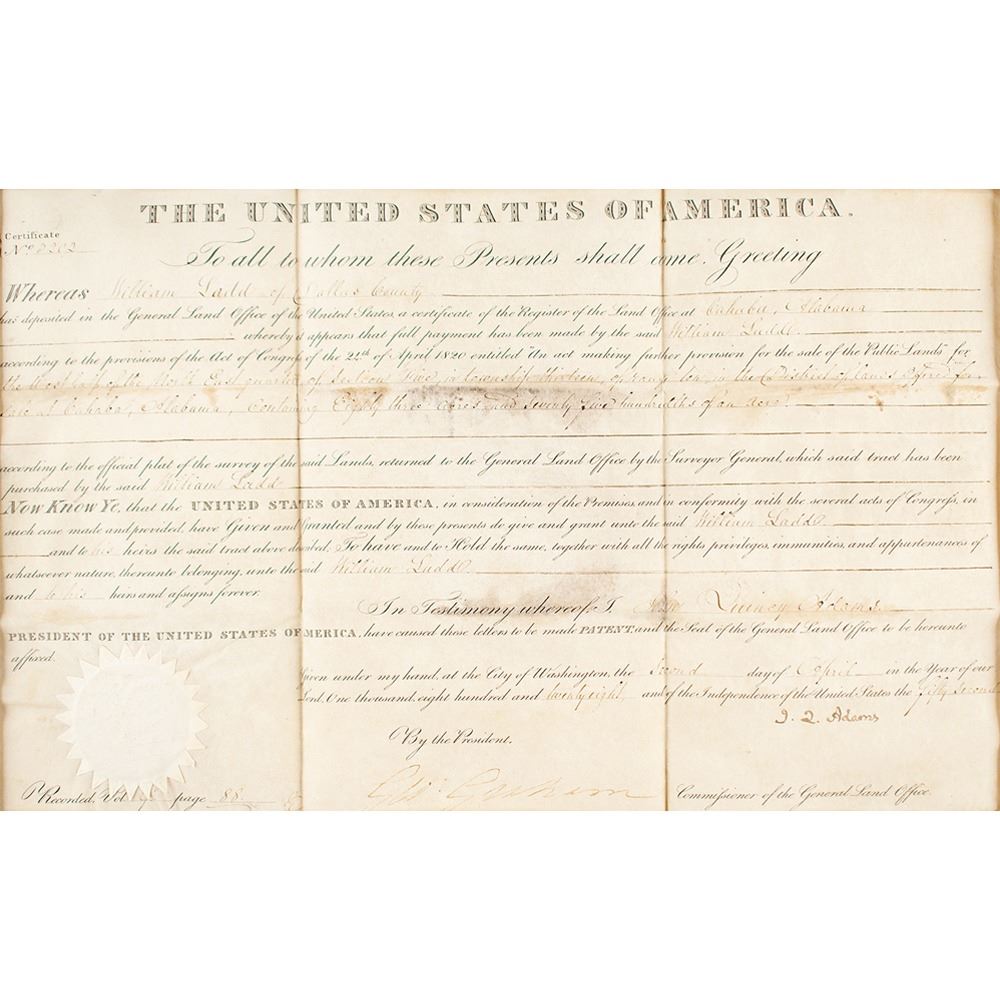 THE UNITED STATES OF AMERICA.
Certificate
No
To all to whom these Presents shall come, Greeting
Whereas William Ladd of Dallas County
has deposited in the General Land Office of the United States a certificate of the Register of the Land Office at Cahaba, Alabama
whereby it appears that full payment has been made by the said William Ladd
according to the provisions of the Act of Congress of the 24th of April 1820 entitled "An act making further provision for the sale of the Public Lands" for
the West half of the North East quarter of Section Five in township thirteen, of range ten, in the District of lands offered for
sale at Cahaba, Alabama, containing Eighty three acres and seventy five hundredths of an acre.
according to the official plat of the survey of the said Lands, returned to the General Land Office by the Surveyor General, which said tract has been
purchased by the said William Ladd
Now Know Ye, that the UNITED STATES OF AMERICA, in consideration of the Premises, and in conformity with the several acts of Congress, in
such case made and provided, have Given and Granted and by these presents do give and grant unto the said William Ladd
and to his heirs the said tract above described. To have and to Hold the same, together with all the rights privileges, immunities, and appurtenances of
whatsoever nature, thereunto belonging, unto the said William Ladd
and to his heirs and assigns forever.
In Testimony whereof I, John Quincy Adams
PRESIDENT OF THE UNITED STATES OF AMERICA, have caused these letters to be made PATENT, and the Seal of the General Land Office to be hereunto
affixed.
Given under my hand, at the City of Washington, the Second day of April in the Year of our
Lord, One thousand, eight hundred and twenty eight and of the Independence of the United States the fifty Second
J. Q. Adams
By the President,
Geo: Graham Commissioner of the General Land Office.
Recorded, Vol page 88